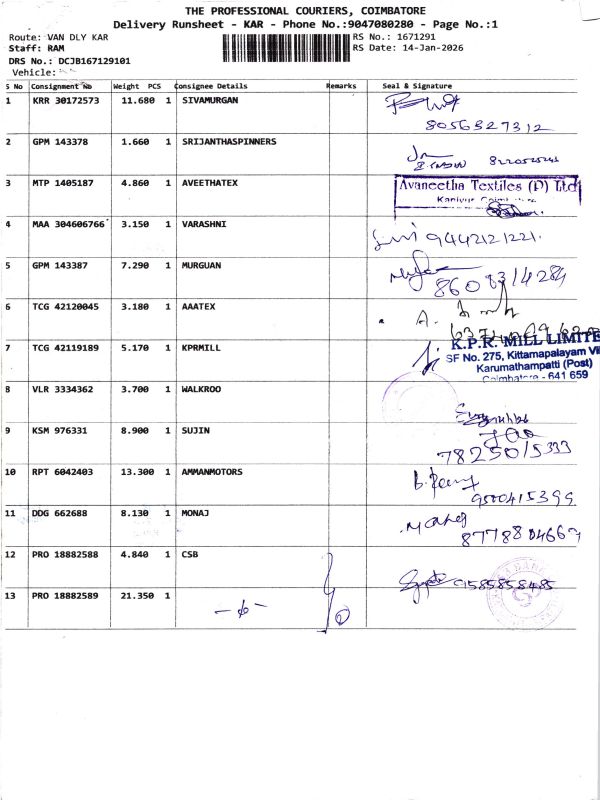 THE PROFESSIONAL COURIERS, COIMBATORE
Delivery Runsheet - KAR - Phone No.:9047080280 - Page No.:1
Route: VAN DLY KAR
RS No.: 1671291
Staff: RAM
RS Date: 14-Jan-2026
DRS No.: DCJB167129101
Vehicle:
S No Consignment No Weight PCS Consignee Details Remarks Seal & Signature
1 KRR 30172573 11.680 1 SIVAMURGAN
8056327312
2 GPM 143378 1.660 1 SRIJANTHASPINNERS
3 MTP 1405187 4.860 1 AVEETHATEX
Avaneetha Textiles (P) Ltd
4 MAA 304606766 3.150 1 VARASHNI
9442121221.
5 GPM 143387 7.290 1 MURGUAN
8608314284
6 TCG 42120045 3.180 1 AAATEX
A.
7 TCG 42119189 5.170 1 KPRMILL
K.P.R. MILL LIMITE
SF No. 275, Kittamapalayam Vil
Karumathampatti (Post)
Coimbatore - 641 659
8 VLR 3334362 3.700 1 WALKROO
9 KSM 976331 8.900 1 SUJIN
7825015333
10 RPT 6042403 13.300 1 AMMANMOTORS
9500415399
11 DDG 662688 8.130 1 MONAJ
8778804667
12 PRO 18882588 4.840 1 CSB
9585858485
13 PRO 18882589 21.350 1